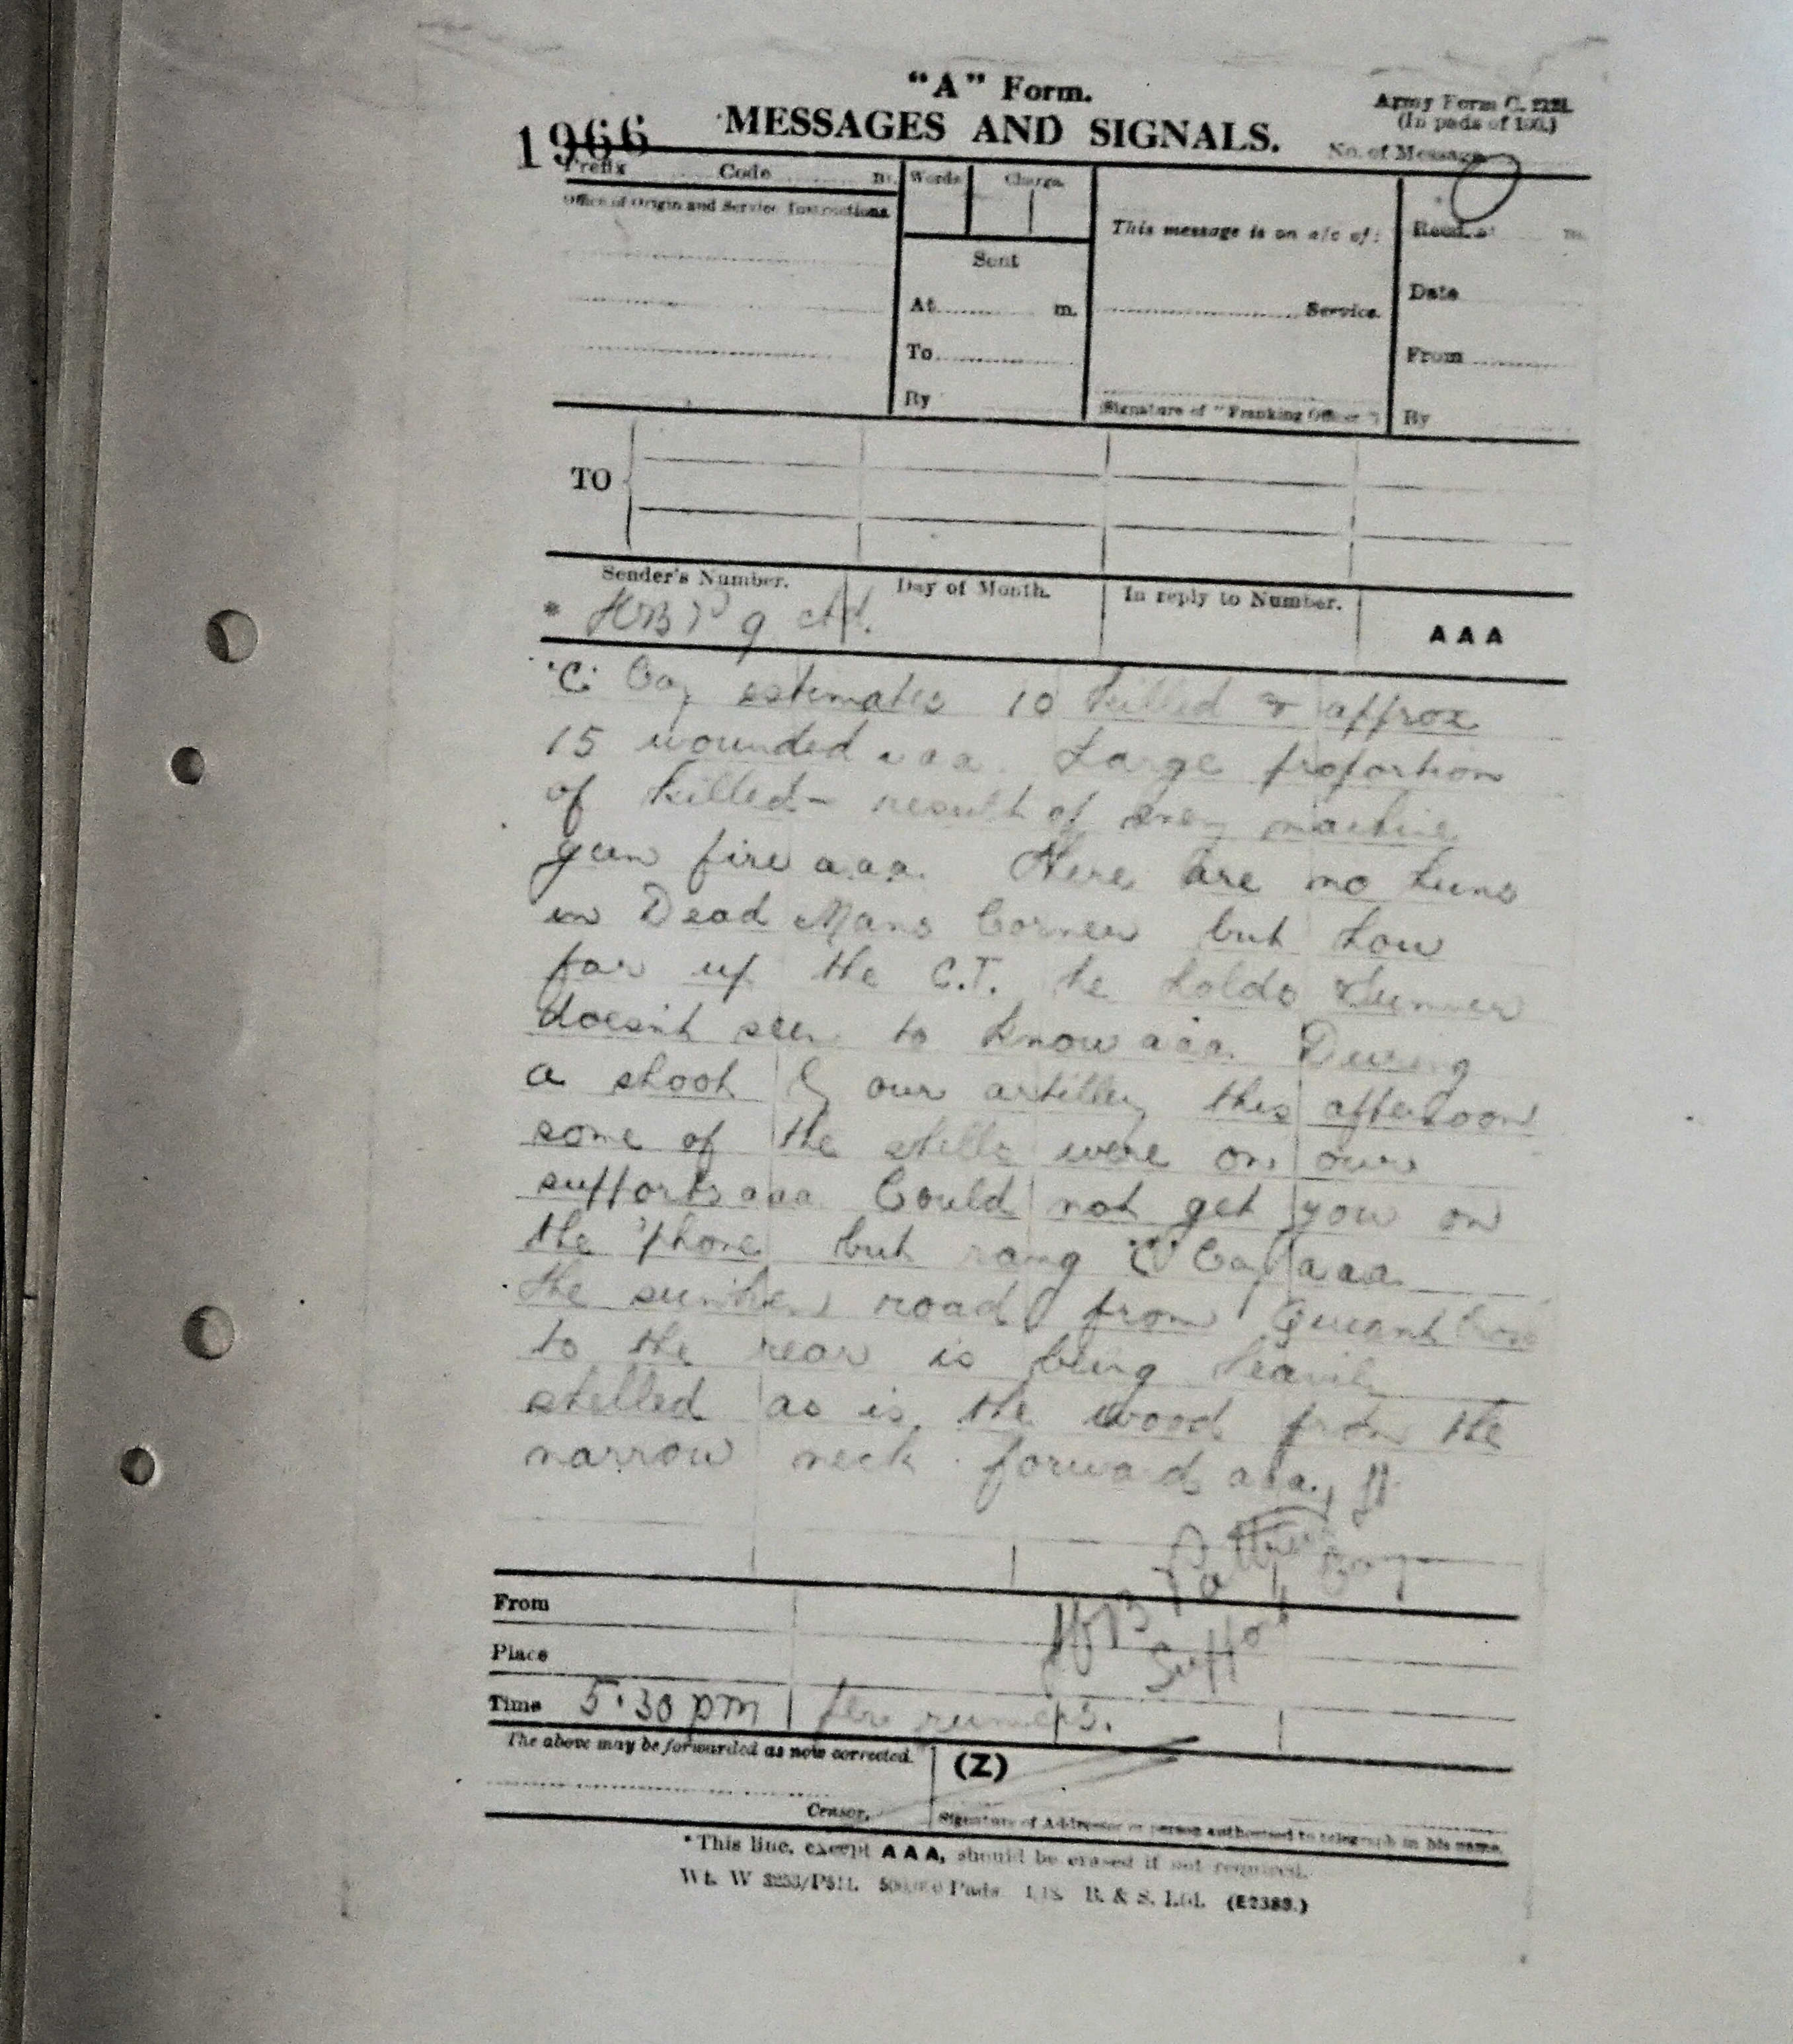 "A" Form.
MESSAGES AND SIGNALS.
Army Form C. 2121.
(In pads of 100.)
No. of Message
1966
Prefix Code m.
Words Charge.
Office of Origin and Service Instructions.
This message is on a/c of:
Recd. at m.
Sent
Date
At m.
Service.
To
From
By
Signature of "Franking Officer")
By
TO
Sender's Number.
Day of Month.
In reply to Number.
AAA
* HBP 9 ctd.
'C' Coy estimates 10 killed & approx
15 wounded aaa. Large proportion
of killed - result of enemy machine
gun fire aaa. There are no huns
in Dead Mans Corner but how
far up the C.T. he holds
doesnt seem to know aaa. During
a shoot by our artillery this afternoon
some of the shells were on our
supports aaa. Could not get you on
the 'phone but rang 'C' Coy aaa.
The sunken road from Queant
to the rear is being heavily
shelled as is the wood from the
narrow neck forward aaa.
HB
Support Coy
From
Place
Time 5.30 pm per runners.
The above may be forwarded as now corrected.
(Z)
Censor.
Signature of Addressor or person authorised to telegraph in his name.
* This line, except AAA, should be erased if not required.
Wt. W 3253/P511. 500,000 Pads B. & S. Ltd. (E2389.)